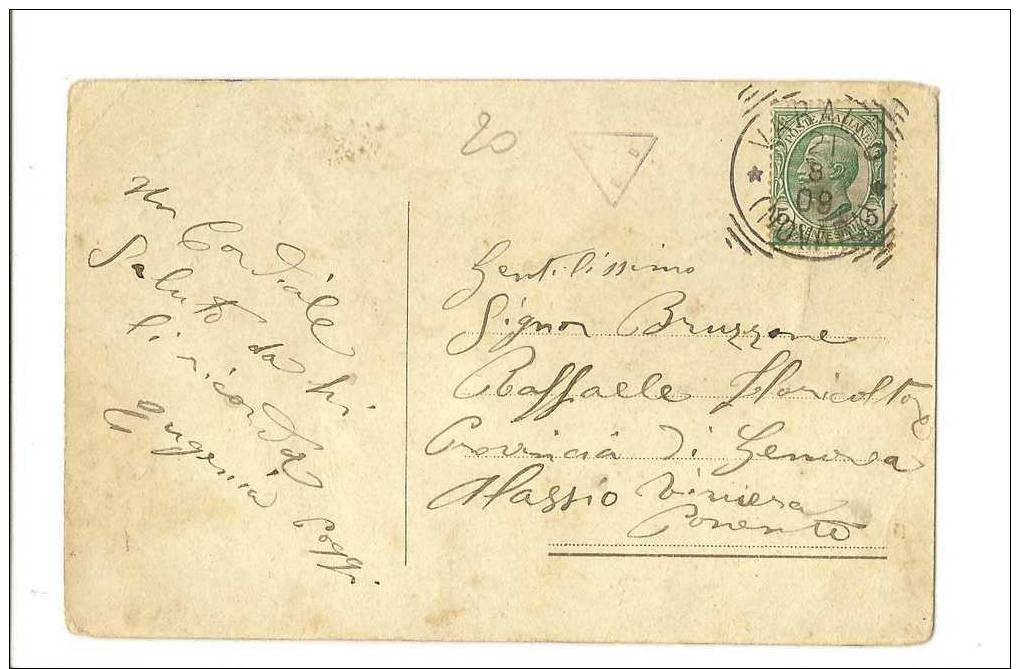 20
VARALLO
21
8
09
POSTE ITALIANE
5
Un Cordiale
Saluto da chi
li ricorda
Eugenia Poggi
Gentilissimo
Signor Bruzzone
Raffaele floricoltore
Provincia di Genova
Alassio Riviera
Ponente